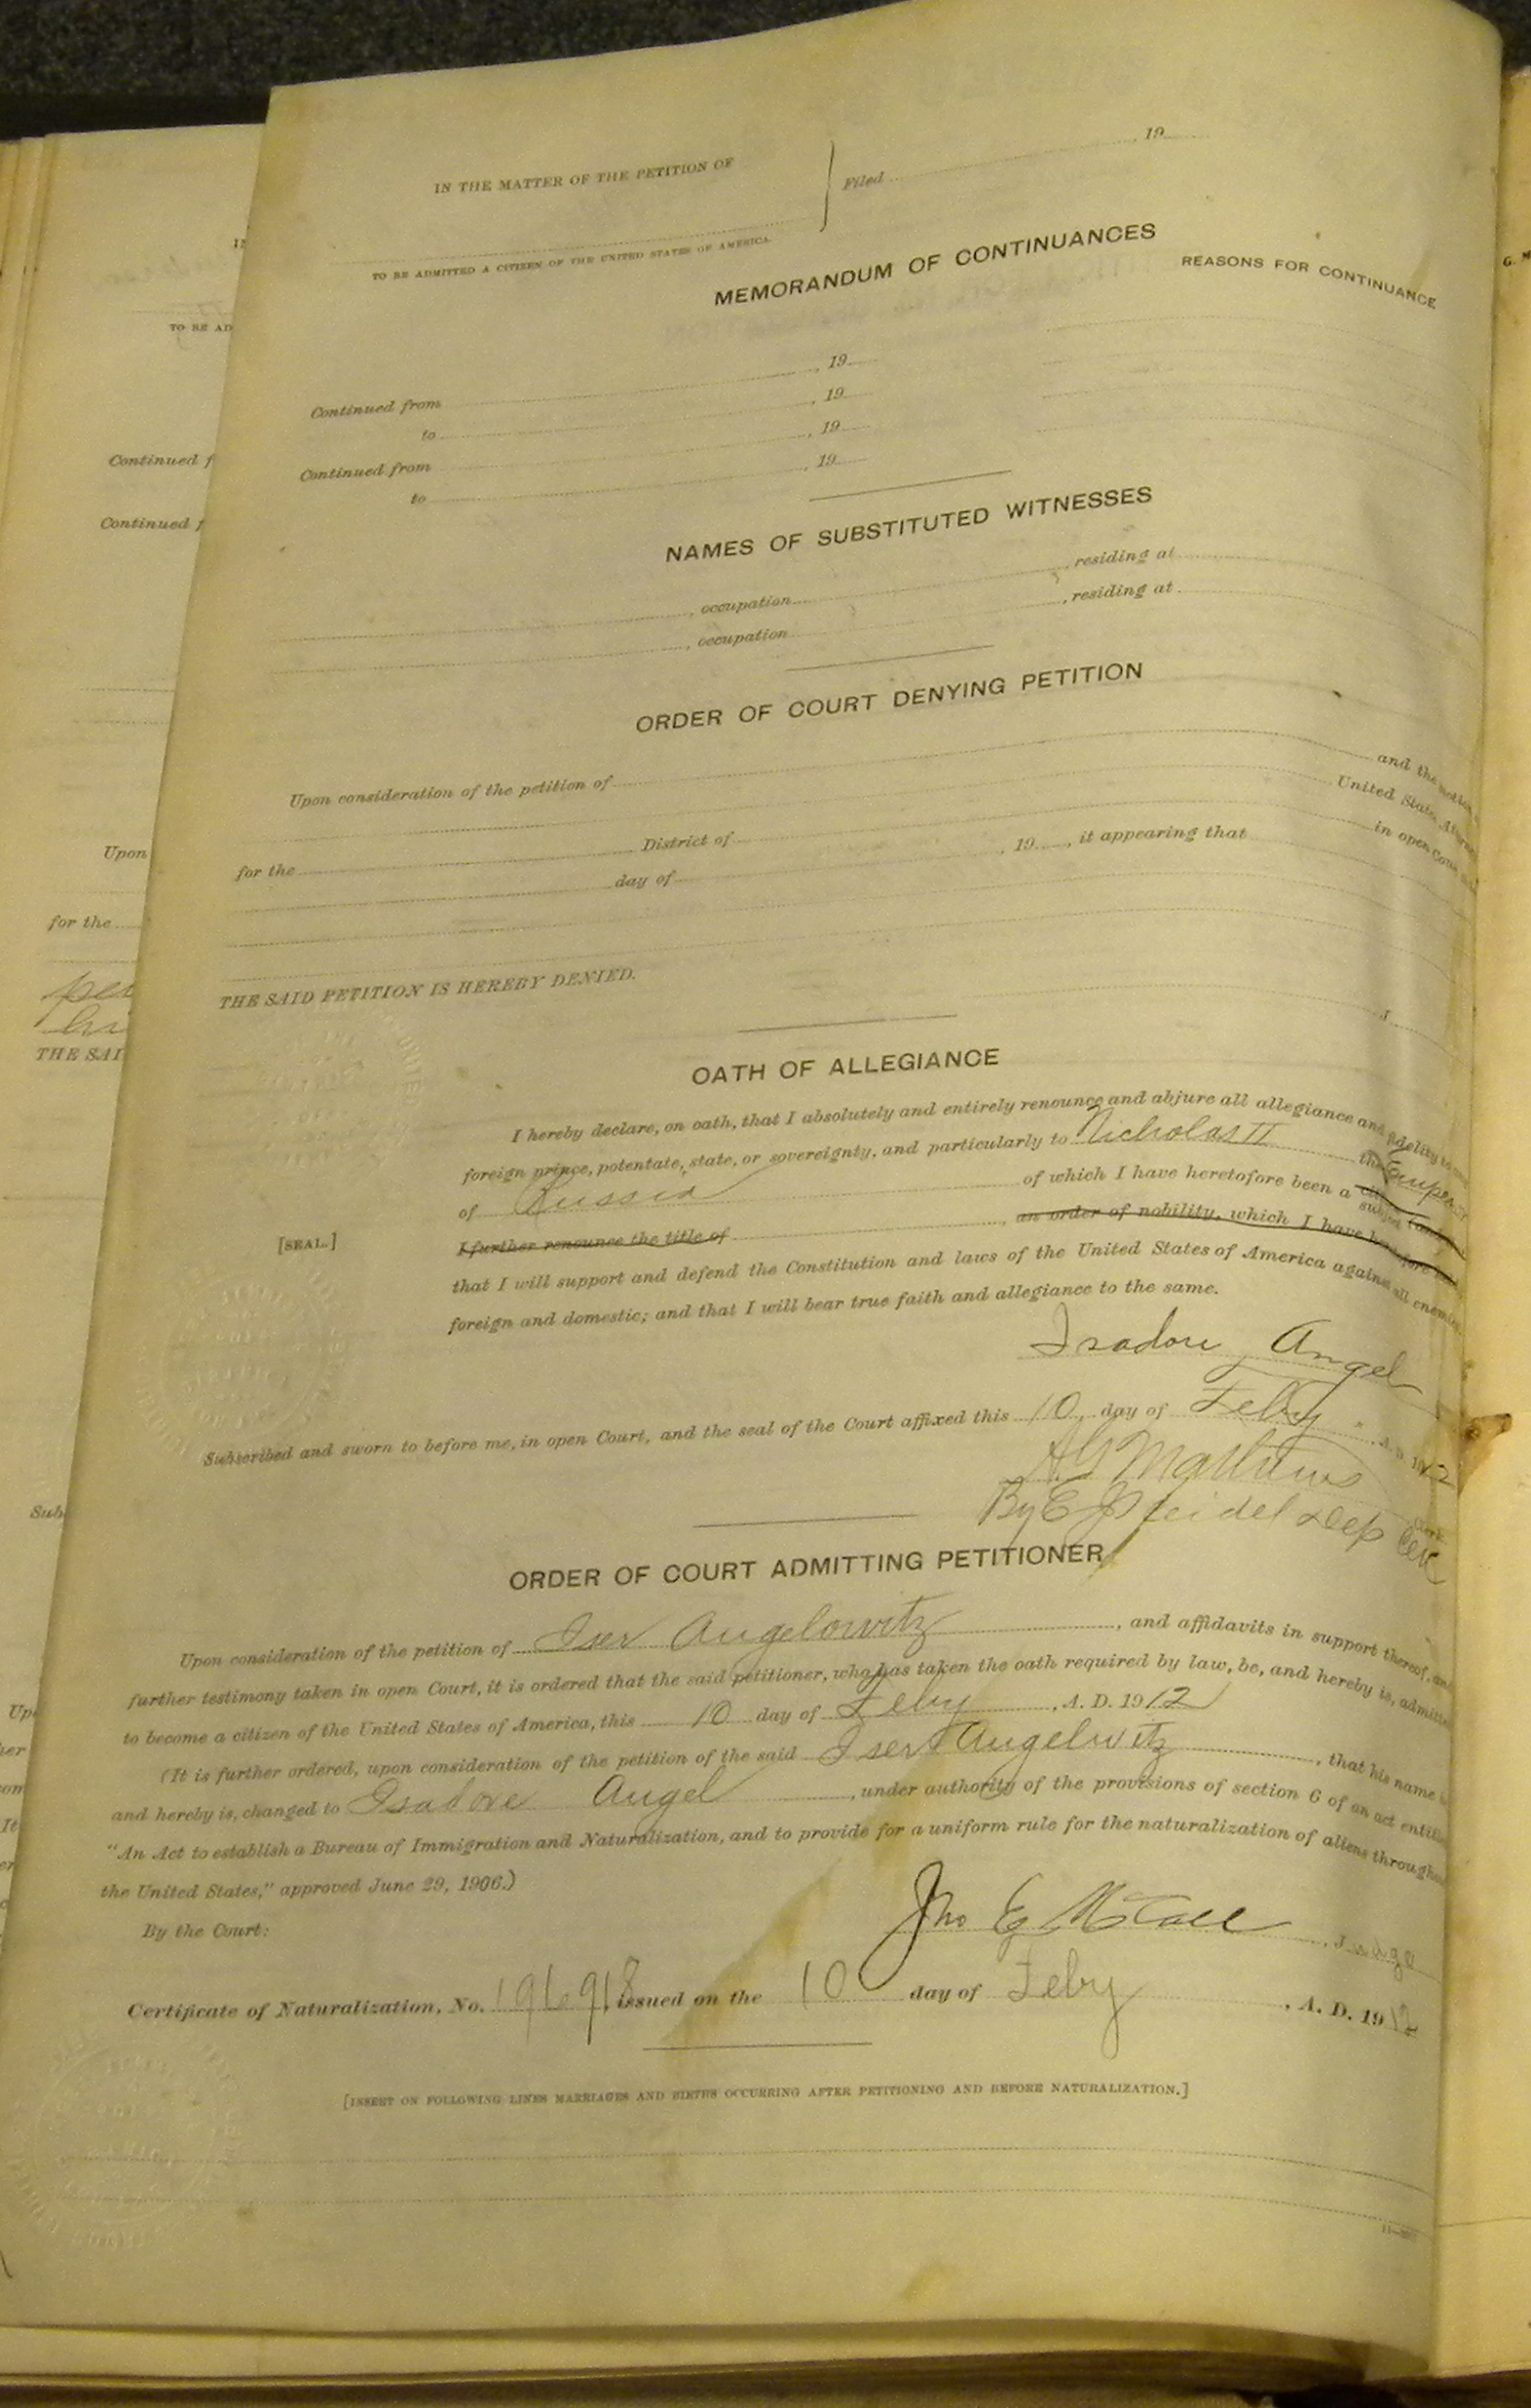 IN THE MATTER OF THE PETITION OF
Filed , 19
TO BE ADMITTED A CITIZEN OF THE UNITED STATES OF AMERICA.
MEMORANDUM OF CONTINUANCES
REASONS FOR CONTINUANCE
Continued from , 19
to , 19
Continued from , 19
to , 19
NAMES OF SUBSTITUTED WITNESSES
, occupation , residing at
, occupation , residing at
ORDER OF COURT DENYING PETITION
Upon consideration of the petition of and the motion
for the District of United States Attorney
day of , 19 , it appearing that in open Court
THE SAID PETITION IS HEREBY DENIED.
, J
OATH OF ALLEGIANCE
I hereby declare, on oath, that I absolutely and entirely renounce and abjure all allegiance and fidelity to
foreign prince, potentate, state, or sovereignty, and particularly to Nicholas II the Emperor
of Russia of which I have heretofore been a subject
I further renounce the title of , an order of nobility, which I have heretofore
that I will support and defend the Constitution and laws of the United States of America against all enemies,
foreign and domestic; and that I will bear true faith and allegiance to the same.
[SEAL.]
Isadore Angel
Subscribed and sworn to before me, in open Court, and the seal of the Court affixed this 10 day of Feby , A. D. 1912
By E Dep Clk
ORDER OF COURT ADMITTING PETITIONER
Upon consideration of the petition of Iser Angelowitz , and affidavits in support thereof, and
further testimony taken in open Court, it is ordered that the said petitioner, who has taken the oath required by law, be, and hereby is, admitted
to become a citizen of the United States of America, this 10 day of Feby , A. D. 1912
(It is further ordered, upon consideration of the petition of the said Iser Angelwitz , that his name
and hereby is, changed to Isadore Angel , under authority of the provisions of section 6 of an act entitled
"An Act to establish a Bureau of Immigration and Naturalization, and to provide for a uniform rule for the naturalization of aliens throughout
the United States," approved June 29, 1906.)
By the Court:
Jno E McCall , Judge
Certificate of Naturalization, No. 196918 issued on the 10 day of Feby , A. D. 1912
[INSERT ON FOLLOWING LINES MARRIAGES AND BIRTHS OCCURRING AFTER PETITIONING AND BEFORE NATURALIZATION.]
TO BE AD
Continued f
Continued f
Upon
for the
THE SAI
Sub